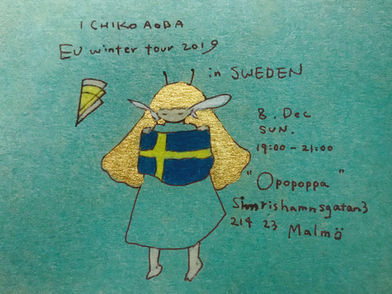 ICHIKO AOBA
EU winter tour 2019
in SWEDEN
8. Dec
SUN.
19:00-21:00
"Opopoppa"
Simrishamnsgatan 3
214 23 Malmö